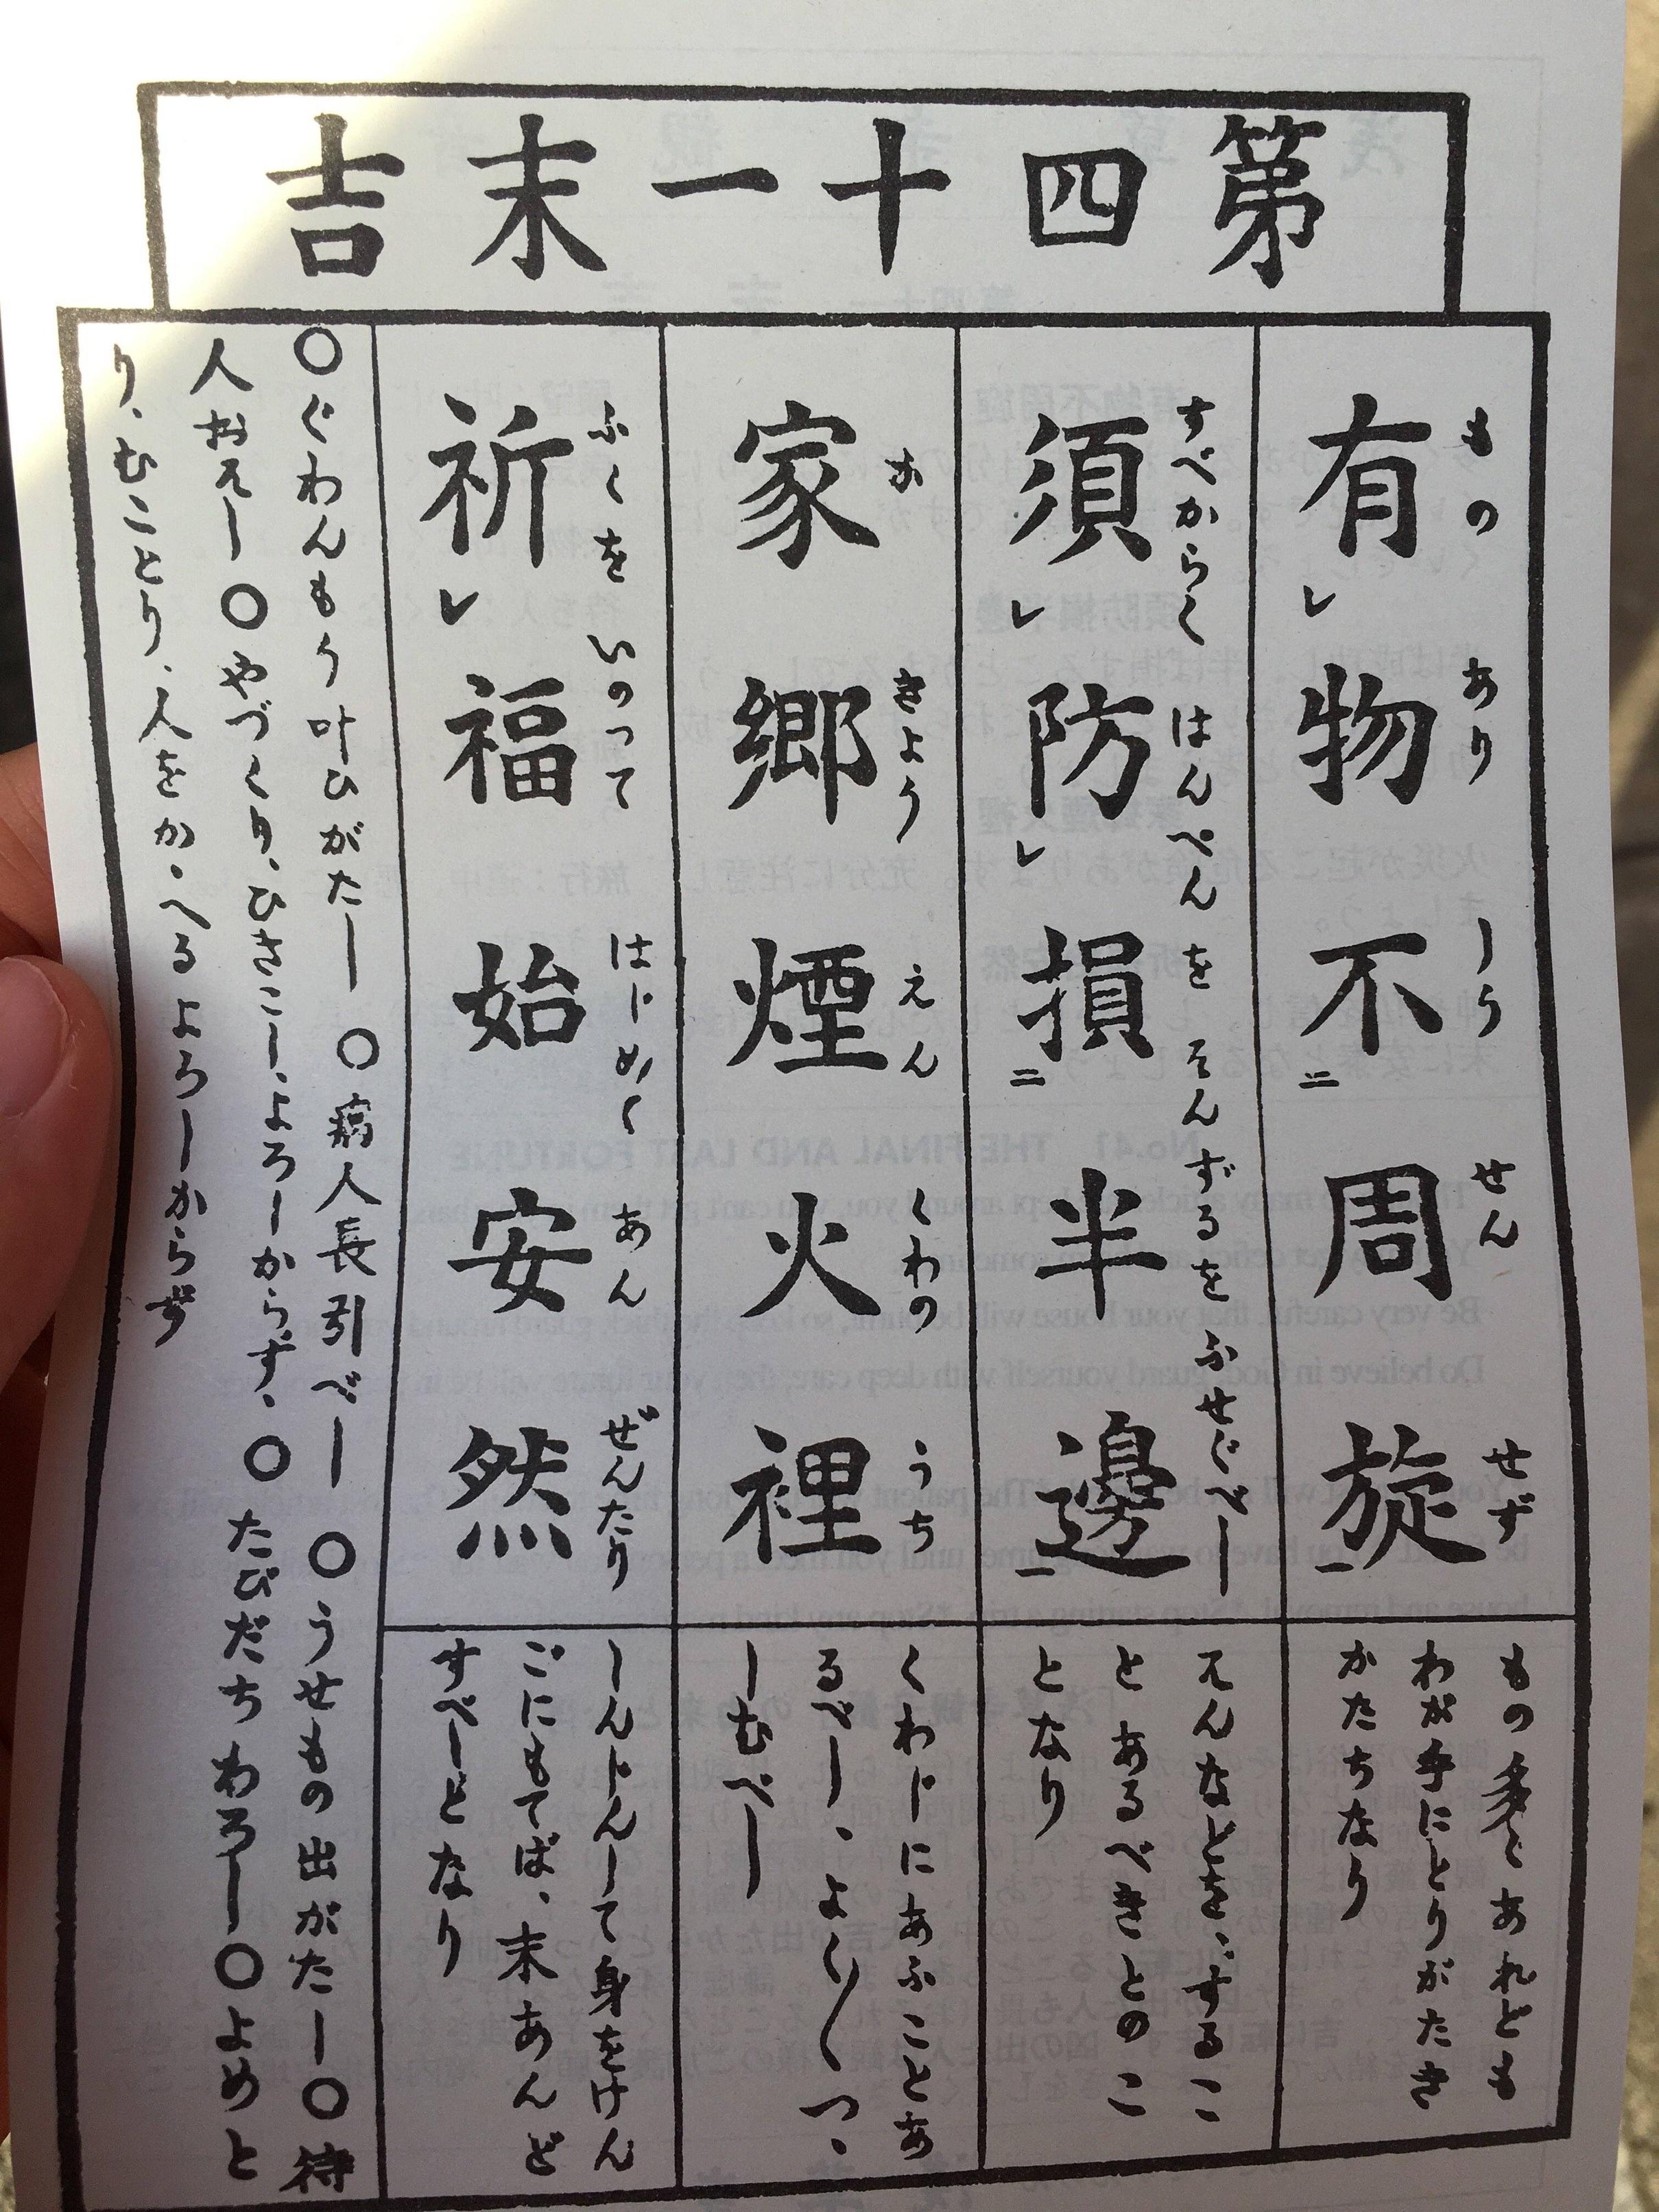 第四十一末吉
有レ物不二周旋一
もの あり しう せん せず
もの多くあれども
わが手にとりがたき
かたちなり
須レ防レ損二半邊一
すべからく はんぺん を そんずるを ふせぐべし
えんなどを、するこ
と あるべきとのこ
となり
家郷煙火裡
か きよう えん くわの うち
くわじにあふことあ
るべし、よく〱つゝ
しむべし
祈レ福始安然
ふくを いのって はじめく あん ぜんたり
しんじんして身をけん
ごにもてば、末あんど
すべしとなり
〇ぐわんもう叶ひがたし 〇病人長引べし 〇うせもの出がたし〇待
人おそし〇やづくり、ひきこし、よろしからず、〇たびだちわろし〇よめと
り、むことり、人をかゝへるよろしからず